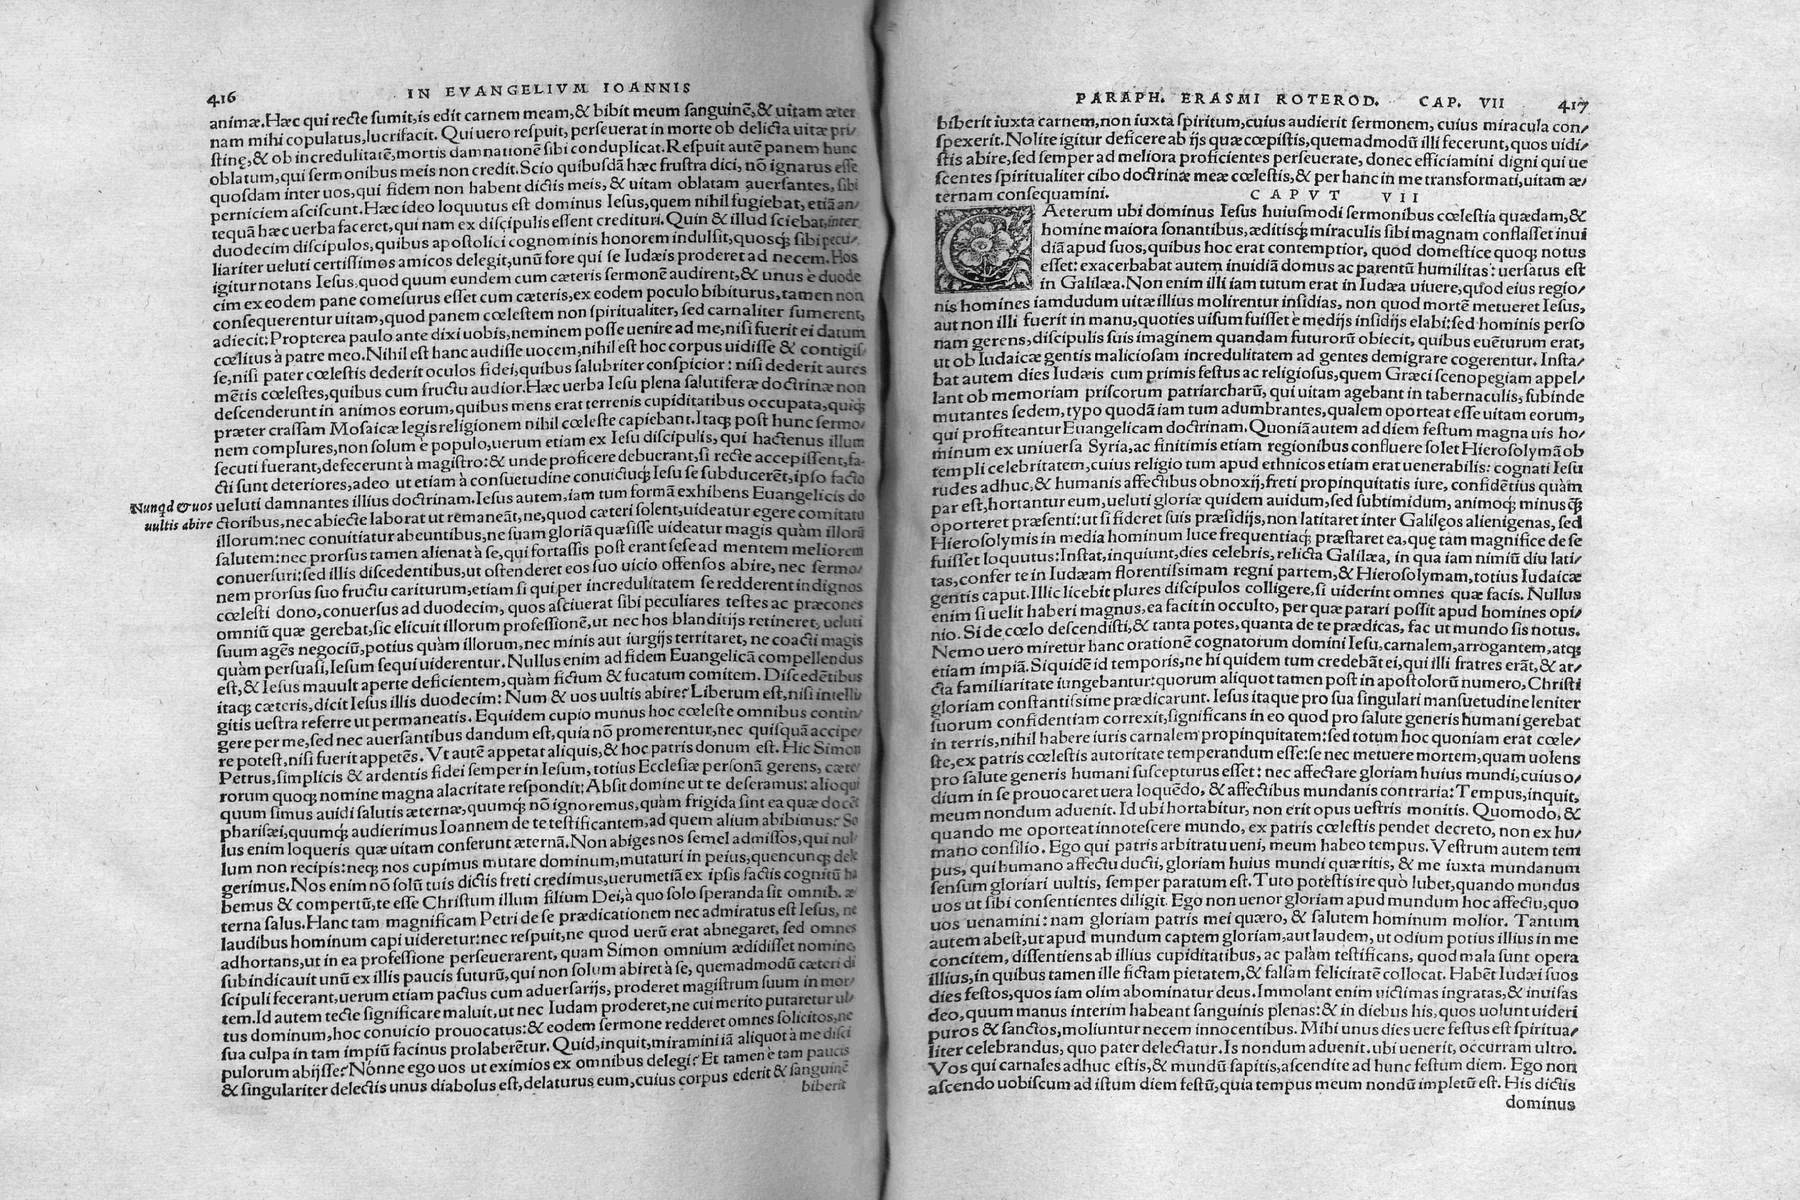 416 IN EVANGELIVM IOANNIS
animæ. Hæc qui recte sumit, is edit carnem meam, & bibit meum sanguinẽ, & uitam æter
nam mihi copulatus, lucrifacit. Qui uero respuit, perseuerat in morte ob delicta uitæ pri/
stinę, & ob incredulitatẽ, mortis damnationẽ sibi conduplicat. Respuit autẽ panem hunc
oblatum, qui sermonibus meis non credit. Scio quibusdã hæc frustra dici, nõ ignarus esse
quosdam inter uos, qui fidem non habent dictis meis, & uitam oblatam auersantes, sibi
perniciem asciscunt. Hæc ideo loquutus est dominus Iesus, quem nihil fugiebat, etiã an/
tequã hæc uerba faceret, qui nam ex discipulis essent credituri. Quin & illud sciebat, inter
duodecim discipulos, quibus apostolici cognominis honorem indulsit, quosq; sibi pecu/
liariter ueluti certissimos amicos delegit, unũ fore qui se Iudæis proderet ad necem. Hos
igitur notans Iesus, quod quum eundem cum cæteris sermonẽ audirent, & unus è duode
cim ex eodem pane comesurus esset cum cæteris, ex eodem poculo bibiturus, tamen non
consequerentur uitam, quod panem cœlestem non spiritualiter, sed carnaliter sumerent,
adiecit: Propterea paulo ante dixi uobis, neminem posse uenire ad me, nisi fuerit ei datum
cœlitus à patre meo. Nihil est hanc audisse uocem, nihil est hoc corpus uidisse & contigis/
se, nisi pater cœlestis dederit oculos fidei, quibus salubriter conspicior: nisi dederit aures
mẽtis cœlestes, quibus cum fructu audior. Hæc uerba Iesu plena salutiferæ doctrinæ non
descenderunt in animos eorum, quibus mens erat terrenis cupiditatibus occupata, quiq;
præter crassam Mosaicæ legis religionem nihil cœleste capiebant. Itaq; post hunc sermo/
nem complures, non solum è populo, uerum etiam ex Iesu discipulis, qui hactenus illum
secuti fuerant, defecerunt à magistro: & unde proficere debucrant, si recte accepissent, fa-
cti sunt deteriores, adeo ut etiam à consuetudine conuictuq; Iesu se subducerẽt, ipso facto
Nunqd & uos ueluti damnantes illius doctrinam. Iesus autem, iam tum formã exhibens Euangelicis do
uultis abire ctoribus, nec abiecte laborat ut remaneãt, ne, quod cæteri solent, uideatur egere comitatu
illorum: nec conuitiatur abeuntibus, ne suam gloriã quæsisse uideatur magis quàm illorũ
salutem: nec prorsus tamen alienat à se, qui fortassis post erant sese ad mentem meliorem
conuersuri: sed illis discedentibus, ut ostenderet eos suo uicio offensos abire, nec sermo/
nem prorsus suo fructu cariturum, etiam si qui per incredulitatem se redderent indignos
cœlesti dono, conuersus ad duodecim, quos asciuerat sibi peculiares testes ac præcones
omniũ quæ gerebat, sic elicuit illorum professionẽ, ut nec hos blanditijs retineret, ueluti
suum agẽs negociũ, potius quàm illorum, nec minis aut iurgijs territaret, ne coacti magis
quàm persuasi, Iesum sequi uiderentur. Nullus enim ad fidem Euangelicã compellendus
est, & Iesus mauult aperte deficientem, quàm fictum & fucatum comitem. Discedẽtibus
itaq; cæteris, dicit Iesus illis duodecim: Num & uos uultis abire? Liberum est, nisi intelli/
gitis uestra referre ut permaneatis. Equidem cupio munus hoc cœleste omnibus contin/
gere per me, sed nec auersantibus dandum est, quia nõ promerentur, nec quisquã accipe/
re potest, nisi fuerit appetẽs. Vt autẽ appetat aliquis, & hoc patris donum est. Hic Simon
Petrus, simplicis & ardentis fidei semper in Iesum, totius Ecclesiæ personã gerens, cæte/
rorum quoq; nomine magna alacritate respondit: Absit domine ut te deseramus: alioqui
quum simus auidi salutis æternæ, quumq; nõ ignoremus, quàm frigida sint ea quæ docẽt
pharisæi, quumq; audierimus Ioannem de te testificantem, ad quem alium abibimus? So
lus enim loqueris quæ uitam conferunt æternã. Non abiges nos semel admissos, qui nul/
lum non recipis: neq; nos cupimus mutare dominum, mutaturi in peius, quencunq; dele
gerimus. Nos enim nõ solũ tuis dictis freti credimus, uerumetiã ex ipsis factis cognitũ ha
bemus & compertũ, te esse Christum illum filium Dei, à quo solo speranda sit omnib. æ
terna salus. Hanc tam magnificam Petri de se prædicationem nec admiratus est Iesus, ne
laudibus hominum capi uideretur: nec respuit, ne quod uerũ erat abnegaret, sed omnes
adhortans, ut in ea professione perseuerarent, quam Simon omnium ædidisset nomine,
subindicauit unũ ex illis paucis futurũ, qui non solum abiret à se, quemadmodũ cæteri di
scipuli fecerant, uerum etiam pactus cum aduersarijs, proderet magistrum suum in mor/
tem. Id autem tecte significare maluit, ut nec Iudam proderet, ne cui merito putaretur ul/
tus dominum, hoc conuicio prouocatus: & eodem sermone redderet omnes solicitos, ne
sua culpa in tam impiũ facinus prolaberẽtur. Quid, inquit, miramini iã aliquot à me disci
pulorum abijsse? Nonne ego uos ut eximios ex omnibus delegi? Et tamen è tam paucis
& singulariter delectis unus diabolus est, delaturus eum, cuius corpus ederit & sanguinẽ
biberit
PARAPH. ERASMI ROTEROD. CAP. VII 417
biberit iuxta carnem, non iuxta spiritum, cuius audierit sermonem, cuius miracula con/
spexerit. Nolite igitur deficere ab ijs quæ cœpistis, quemadmodũ illi fecerunt, quos uidi/
stis abire, sed semper ad meliora proficientes perseuerate, donec efficiamini digni qui ue
scentes spiritualiter cibo doctrinæ meæ cœlestis, & per hanc in me transformati, uitam æ/
ternam consequamini. CAPVT VII
CAeterum ubi dominus Iesus huiusmodi sermonibus cœlestia quædam, &
homine maiora sonantibus, æditisq; miraculis sibi magnam conflasset inui
diã apud suos, quibus hoc erat contemptior, quod domestice quoq; notus
esset: exacerbabat autem inuidiã domus ac parentũ humilitas: uersatus est
in Galilæa. Non enim illi iam tutum erat in Iudæa uiuere, quod eius regio/
nis homines iamdudum uitæ illius molirentur insidias, non quod mortẽ metueret Iesus,
aut non illi fuerit in manu, quoties uisum fuisset è medijs insidijs elabi: sed hominis perso
nam gerens, discipulis suis imaginem quandam futurorũ obiecit, quibus euẽturum erat,
ut ob Iudaicæ gentis maliciosam incredulitatem ad gentes demigrare cogerentur. Insta/
bat autem dies Iudæis cum primis festus ac religiosus, quem Græci scenopegiam appel/
lant ob memoriam priscorum patriarcharũ, qui uitam agebant in tabernaculis, subinde
mutantes sedem, typo quodã iam tum adumbrantes, qualem oporteat esse uitam eorum,
qui profiteantur Euangelicam doctrinam. Quoniã autem ad diem festum magna uis ho/
minum ex uniuersa Syria, ac finitimis etiam regionibus confluere solet Hierosolymã ob
templi celebritatem, cuius religio tum apud ethnicos etiam erat uenerabilis: cognati Iesu
rudes adhuc, & humanis affectibus obnoxij, freti propinquitatis iure, confidẽtius quàm
par est, hortantur eum, ueluti gloriæ quidem auidum, sed subtimidum, animoq; minus q̃
oporteret præsenti: ut si fideret suis præsidijs, non latitaret inter Galilęos alienigenas, sed
Hierosolymis in media hominum luce frequentiaq; præstaret ea, quę tam magnifice de se
fuisset loquutus: Instat, inquiunt, dies celebris, relicta Galilæa, in qua iam nimiũ diu lati/
tas, confer te in Iudæam florentissimam regni partem, & Hierosolymam, totius Iudaicæ
gentis caput. Illic licebit plures discipulos colligere, si uiderint omnes quæ facis. Nullus
enim si uelit haberi magnus, ea facit in occulto, per quæ parari possit apud homines opi/
nio. Si de cœlo descendisti, & tanta potes, quanta de te prædicas, fac ut mundo sis notus.
Nemo uero miretur hanc orationẽ cognatorum domini Iesu, carnalem, arrogantem, atq;
etiam impiã. Siquidẽ id temporis, ne hi quidem tum credebãt ei, qui illi fratres erãt, & ar/
cta familiaritate iungebantur: quorum aliquot tamen post in apostolorũ numero, Christi
gloriam constantissime prædicarunt. Iesus itaque pro sua singulari mansuetudine leniter
suorum confidentiam correxit, significans in eo quod pro salute generis humani gerebat
in terris, nihil habere iuris carnalem propinquitatem: sed totum hoc quoniam erat cœle/
ste, ex patris cœlestis autoritate temperandum esse: se nec metuere mortem, quam uolens
pro salute generis humani suscepturus esset: nec affectare gloriam huius mundi, cuius o/
dium in se prouocaret uera loquẽdo, & affectibus mundanis contraria: Tempus, inquit,
meum nondum aduenit. Id ubi hortabitur, non erit opus uestris monitis. Quomodo, &
quando me oporteat innotescere mundo, ex patris cœlestis pendet decreto, non ex hu/
mano consilio. Ego qui patris arbitratu ueni, meum habeo tempus. Vestrum autem tem
pus, qui humano affectu ducti, gloriam huius mundi quæritis, & me iuxta mundanum
sensum gloriari uultis, semper paratum est. Tuto potestis ire quò lubet, quando mundus
uos ut sibi consentientes diligit. Ego non uenor gloriam apud mundum hoc affectu, quo
uos uenamini: nam gloriam patris mei quæro, & salutem hominum molior. Tantum
autem abest, ut apud mundum captem gloriam, aut laudem, ut odium potius illius in me
concitem, dissentiens ab illius cupiditatibus, ac palàm testificans, quod mala sunt opera
illius, in quibus tamen ille fictam pietatem, & falsam felicitatẽ collocat. Habẽt Iudæi suos
dies festos, quos iam olim abominatur deus. Immolant enim uictimas ingratas, & inuisas
deo, quum manus interim habeant sanguinis plenas: & in diebus his, quos uolunt uideri
puros & sanctos, moliuntur necem innocentibus. Mihi unus dies uere festus est spiritua/
liter celebrandus, quo pater delectatur. Is nondum aduenit. ubi uenerit, occurram ultro.
Vos qui carnales adhuc estis, & mundũ sapitis, ascendite ad hunc festum diem. Ego non
ascendo uobiscum ad istum diem festũ, quia tempus meum nondũ impletũ est. His dictis
dominus